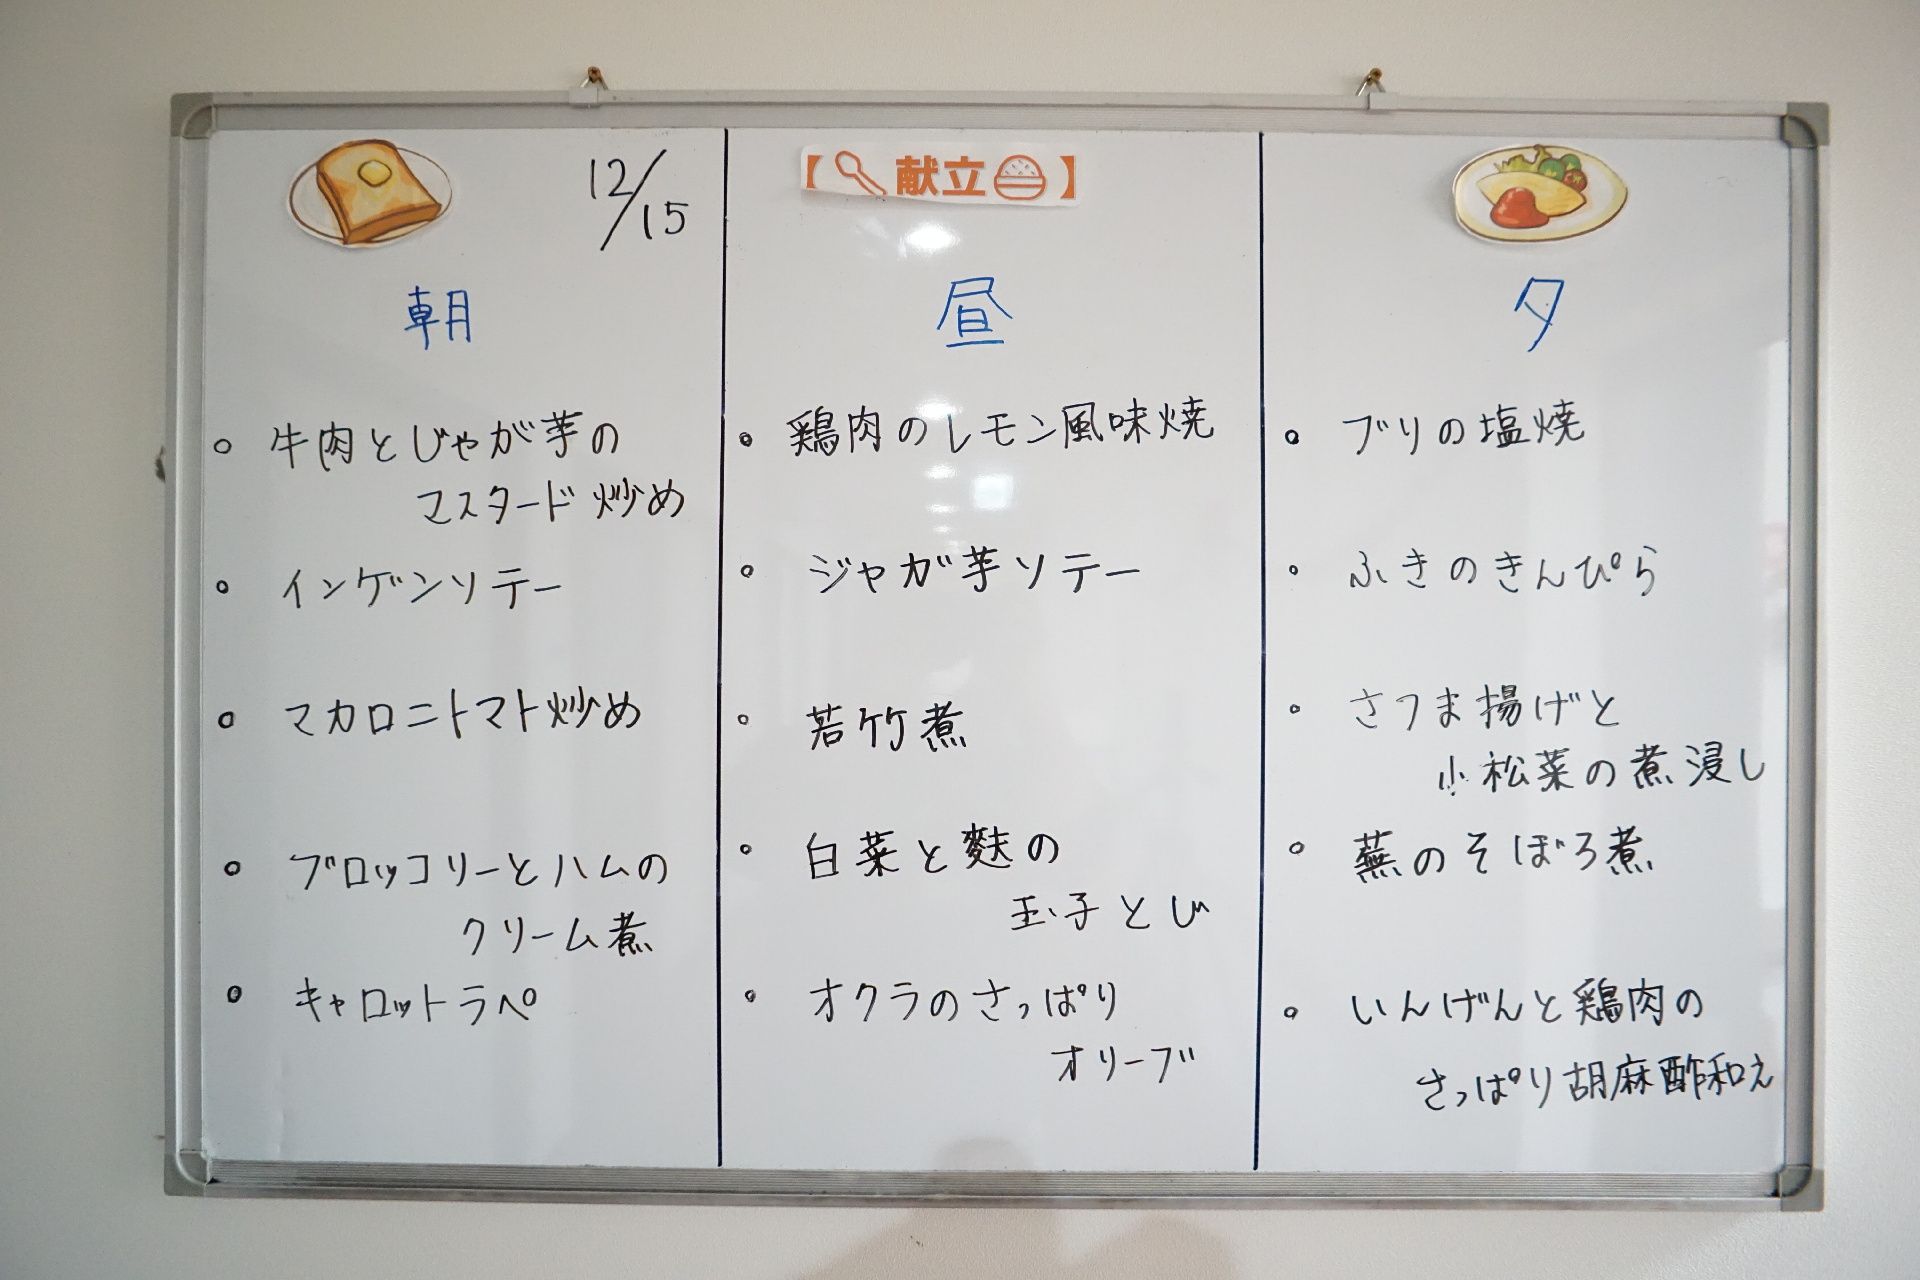 12/15
朝
牛肉とじゃが芋の
マスタード炒め
インゲンソテー
マカロニトマト炒め
ブロッコリーとハムの
クリーム煮
キャロットラペ
【献立】
昼
鶏肉のレモン風味焼
ジャガ芋ソテー
若竹煮
白菜と麩の
玉子とじ
オクラのさっぱり
オリーブ
夕
ブリの塩焼
ふきのきんぴら
さつま揚げと
小松菜の煮浸し
蕪のそぼろ煮
いんげんと鶏肉の
さっぱり胡麻酢和え